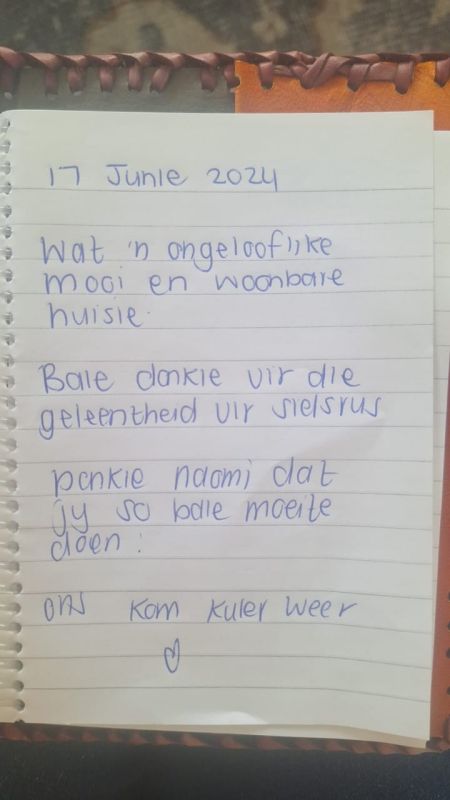 17 Junie 2024
Wat 'n ongelooflike
mooi en woonbare
huisie.
Baie dankie vir die
geleentheid vir sielsrus
Dankie naomi dat
jy so baie moeite
doen!
ons kom kuier weer